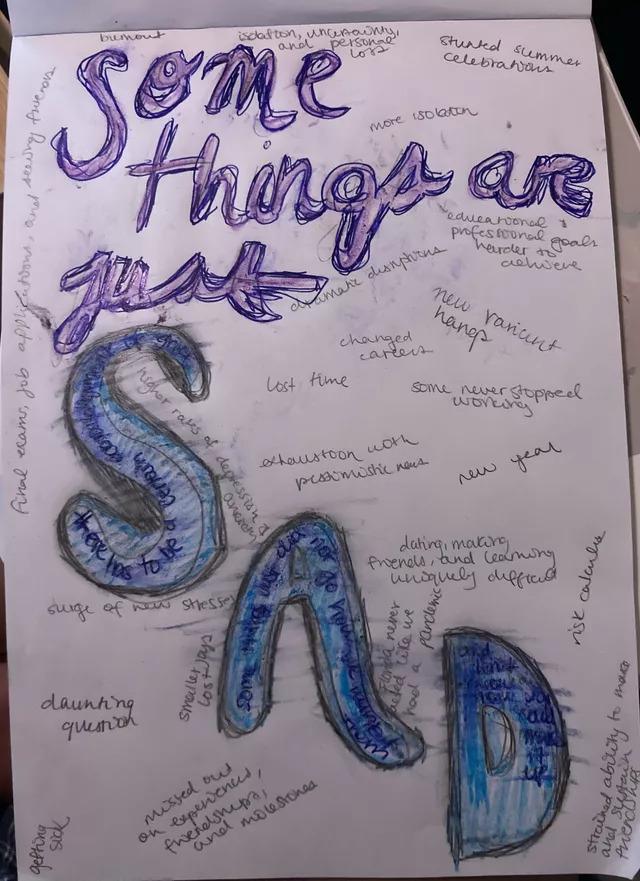 burnout
isolation, uncertainty,
and personal
loss
stunted summer
celebrations
Some
more isolation
things are
educational &
professional goals
harder to
achieve
just
dramatic disruptions
new varient
hangs
changed
careers
lost time
some never stopped
working
final exams, job applications, and seeing friends
higher rates of depression &
anxiety
exhaustion with
pessimistic news
new year
S
there has to be a certain acknowledgment of grief
dating, making
friends, and learning
uniquely difficult
risk calculus
surge of new stresses
A
some things just did not go how
D
and
smaller joys
lost
Florida never
acted like we
had a
pandemic
daunting
question
missed out
on experiences,
friendships,
and milestones
getting
sick
strained ability to make
and sustain
friendships